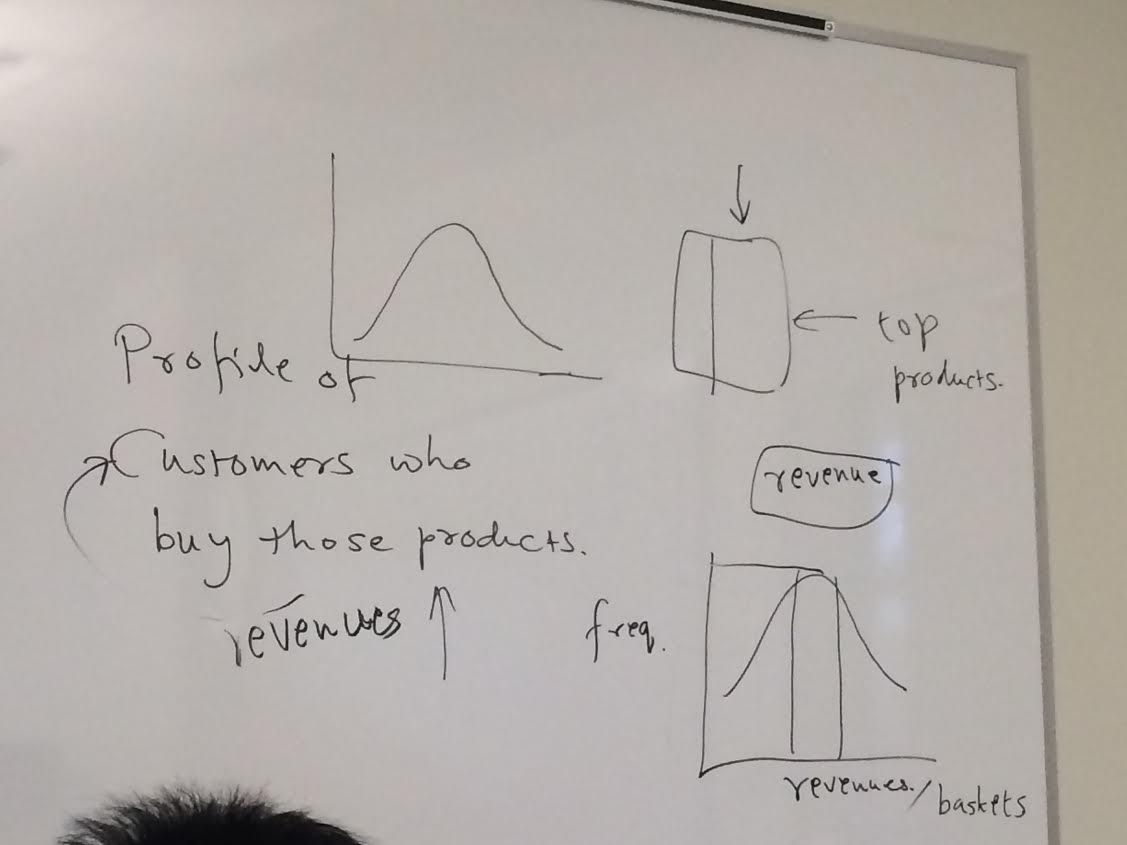 Profile of
Customers who
buy those products.
revenues
top
products.
revenue
freq.
revenues/baskets